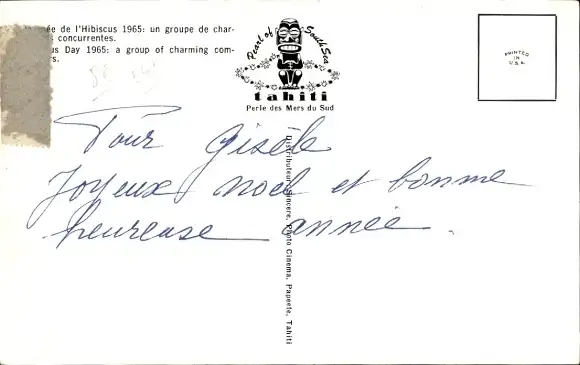 ée de l'Hibiscus 1965: un groupe de char-
s concurrentes.
us Day 1965: a group of charming com-
rs.
Pearl of South Sea
tahiti
Perle des Mers du Sud
PRINTED
IN
U.S.A.
Pour Gisèle
Joyeux noel et bonne
heureuse année.
Distributeur: Sincere, Photo Cinema, Papeete, Tahiti